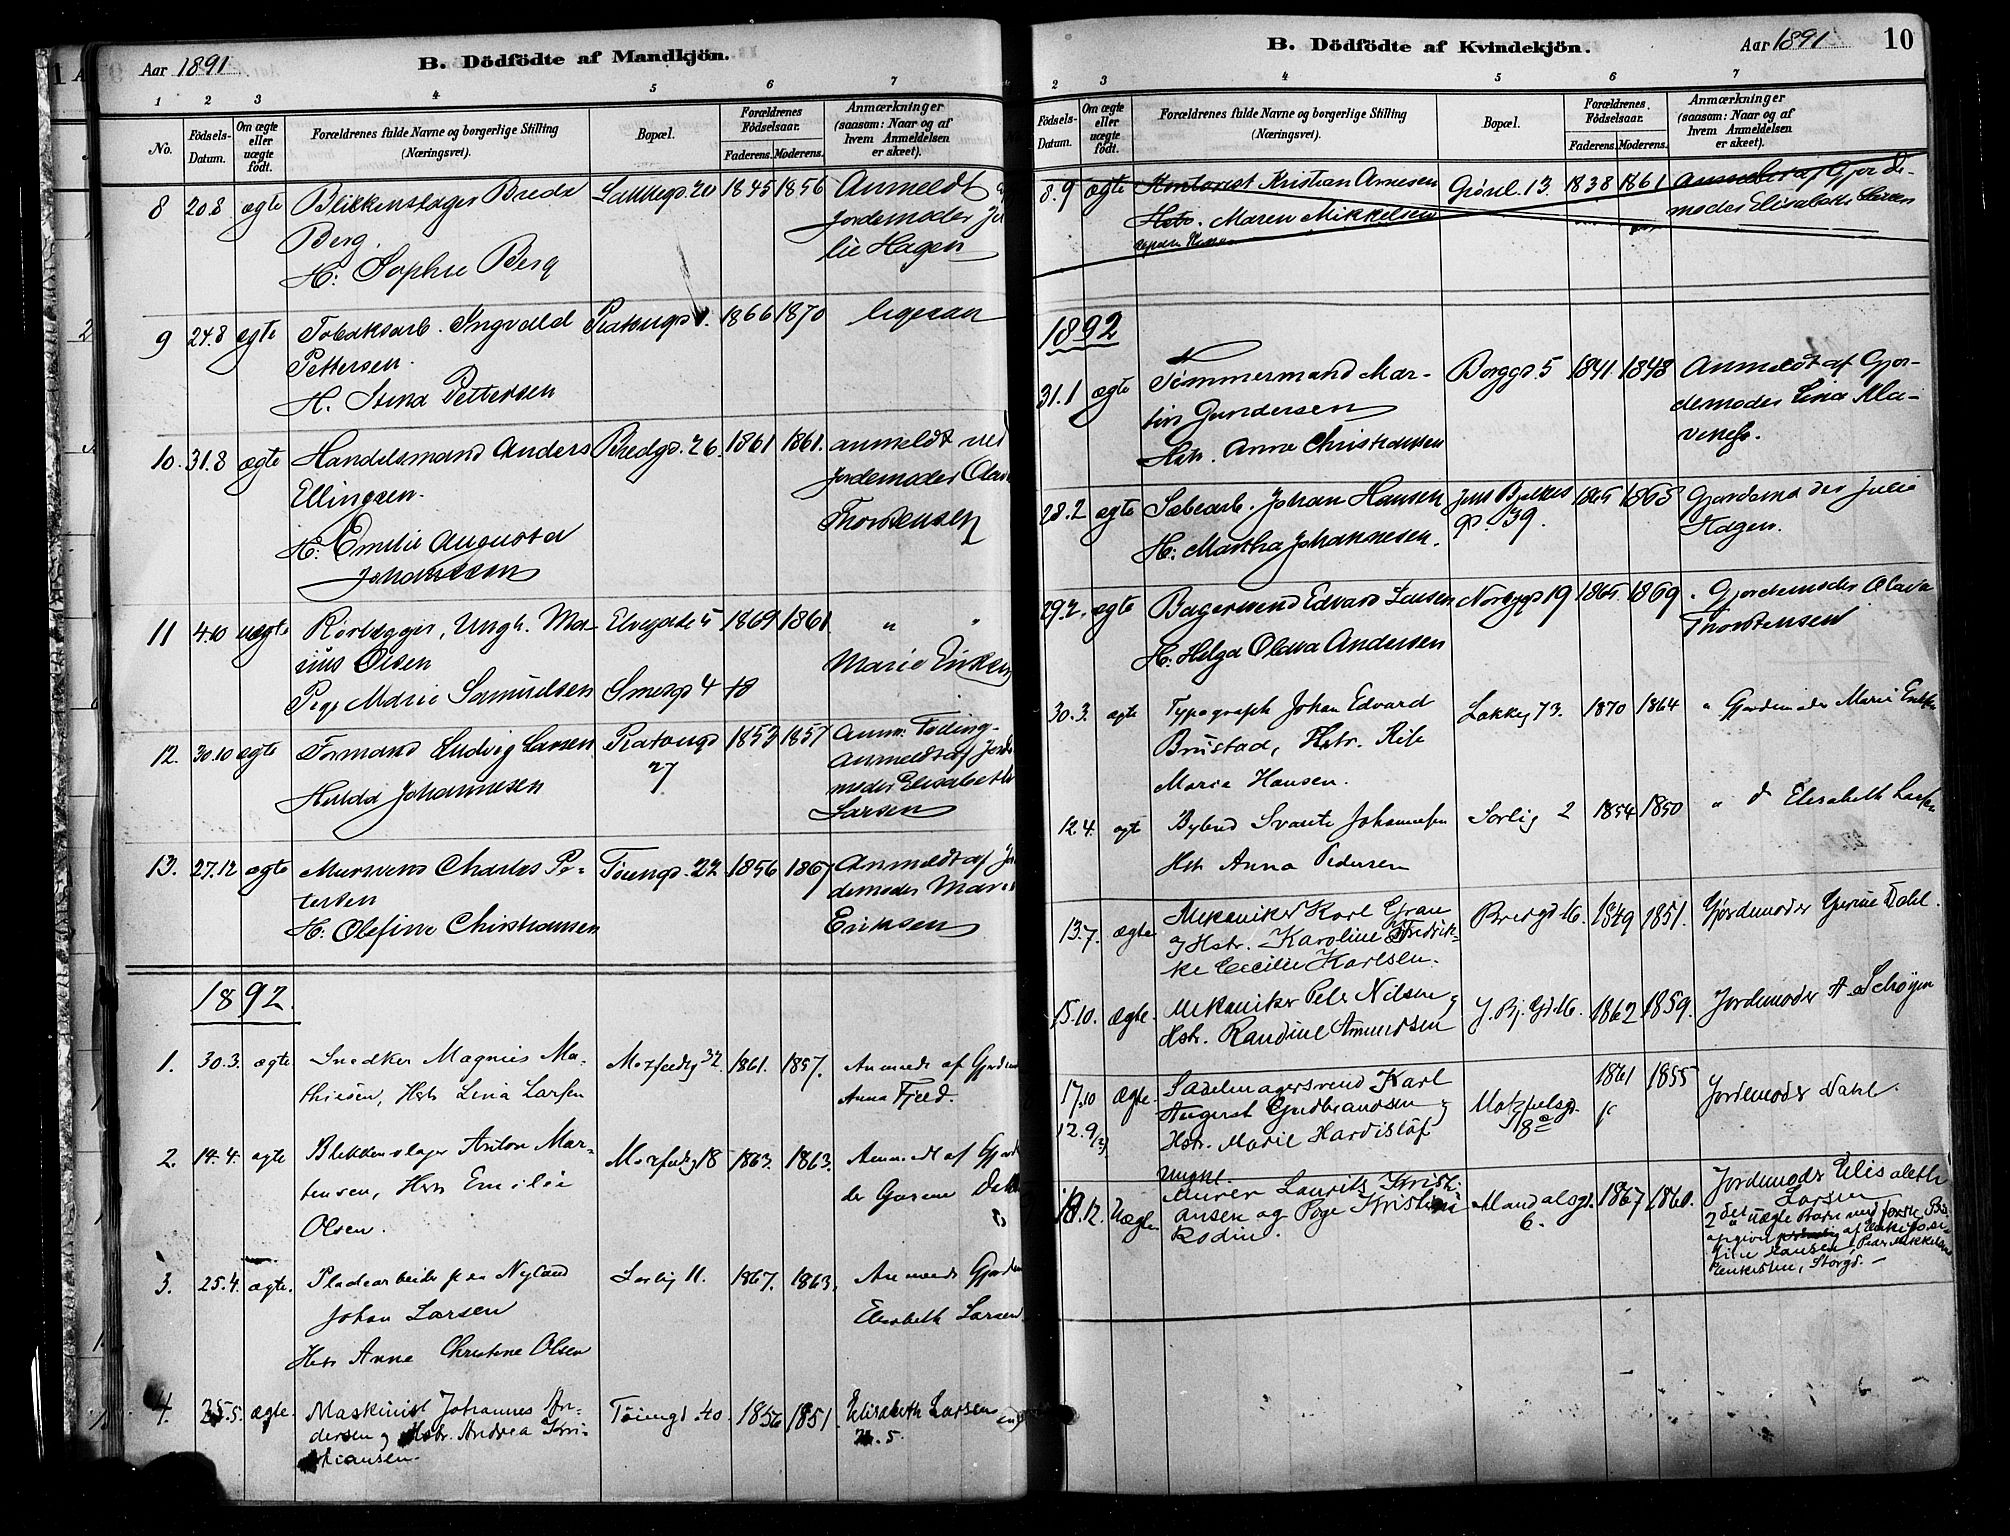 Aar 1891
B. Dödfödte af Mandkjön.
1 2 3 4 5 6 7
No.
Födsels-Datum.
Om ægte eller uægte födt.
Forældrenes fulde Navne og borgerlige Stilling
(Næringsvei).
Bopæl.
Forældrenes Födselsaar.
Faderens. Moderens.
Anmærkninger
(saasom: Naar og af
hvem Anmeldelsen
er skeet).
8 20.8 ægte Blikkenslager Breda 20 1845 1856 Anmeldt
Berg. Jordemoder Ju
H: Sophie Berg lie Hagen
9 24.8 ægte Tobaksarb. Ingvald 1866 1870 ligesaa
Pettersen.
H. Stina Pettersen
10. 31.8 ægte Handelsmand Anders Bredgd. 26. 1861 1861. anmeldt ved
Ellingsen. Jordemoder Olava
H: Emilie Augusta Thorstensen
Johanssen
11 4.10 uægte Rørlægger, Ungk. Ma- Elvegade 5 1869 1861. " "
rius Olsen Marie Eriksen
Pige Marie Samuelsen Smergd 4
12. 30.10 ægte Formand Ludvig Larsen Platougd 1853 1857 Anm.
27 Anmeldt af Jorde
Hulda Johannesen moder Elisabeth
Larsen
13. 27.12 ægte Mursvend Charles Pe- Töiengd. 22 1856 1867 Anmeldt af Jor
tersen demoder Marie
H: Olefine Christiansen Eriksen
1892.
1. 30.3. ægte Snedker Magnus Ma- 32. 1861. 1857. Anmeldt af Gjordem
thiesen, Hstr Lina Larsen Anna Fjeld.
2. 14.4. ægte Blikkenslager Anton Mar- 18 1863. 1863. Anmeldt af Gjord
tensen, Hstr Emilie Dahl
Olsen.
3. 25.4. ægte. Pladearbeider paa Nyland Sørlig 11. 1867. 1863. Anmeldt Gjordem
Johan Larsen Elisabeth Larsen.
Hstr Anne Christine Olsen
4. 25.5. ægte. Maskinist Johannes An- Töiengd. 40 1856 1851. Elisabeth Larsen
dersen og Hstr. Andrea Kri-
stiansen.
B. Dödfödte af Kvindekjön.
Aar 1891 10
2 3 4 5 6 7
Födsels-Datum.
Om ægte eller uægte födt.
Forældrenes fulde Navne og borgerlige Stilling
(Næringsvei).
Bopæl.
Forældrenes Födselsaar.
Faderens. Moderens.
Anmærkninger
(saasom: Naar og af
hvem Anmeldelsen
er skeet).
8.9 ægte Kontorist Kristian Arnesen Grönl. 13. 1838 1861 Anmeldt af Gjorde-
Hstr. Maren Mikkelsen moder Elisabeth Larsen
1892
31.1 ægte Tömmermand Mar- Borggd. 5 1841. 1848 Anmeldt af Gjor-
tin Gundersen demoder Lina Kla-
Hstr. Anne Christiansen
28.2 ægte Sæbearb. Johan Hansen Jens Bjelkes 1865 1865 Gjordemoder Julie
gd. 39. Hagen.
H: Martha Johannesen.
29.2. ægte Bagersvend Edvard Larsen Norbygd 19 1865. 1869 Gjordemoder Olava
H: Helga Olava Andersen Thorstensen
30.3. ægte Typograph Johan Edvard Lakkeg 73. 1870 1864 " Gjordemoder Marie Eriksen
Brustad, Hstr.
Marie Hansen.
12.4. ægte Bybud Svante Johannesen Sørlig 2 1854 1850 " Elisabeth Larsen
Hstr Anna Pedersen
13.7. ægte Mekaniker Karl Gran Bredgd. 16. 1849 1851. Gjördemoder Dahl.
og Hstr. Karoline Fredrik-
ke Cecilie Karlsen.
15.10. ægte. Mekaniker Peter Nilsen og J. Bj. Gd. 16. 1862 1859. Jordemoder A. Schøyen
Hstr. Randine Amundsen
17.10 ægte. Sadelmagersvend Karl 1861 1855 Jordemoder Dahl.
12.9 August Gudbrandsen og Motzfelsgd.
Hstr. Marie
18.12. Uægte Ungk. Murer Laurits Kristi- Mandalsgd. 1867 1860. Jordemoder Elisabeth
ansen og Pige Kristine 6. Larsen
Rodin. 2det uægte Barn
Storgd. —